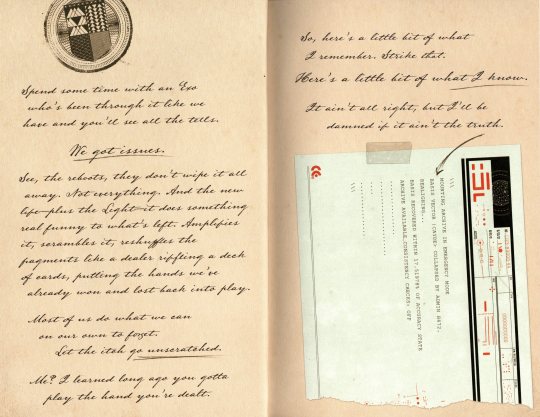 Spend some time with an Exo
who's been through it like we
have and you'll see all the tells.
We got issues.
See, the reboots, they don't wipe it all
away. Not everything. And the new
life plus the Light it does something
real funny to what's left. Amplifies
it, scrambles it, reshuffles the
fragments like a dealer riffling a deck
of cards, putting the hands we've
already won and lost back into play.
Most of us do what we can
on our own to forget.
Let the itch go unscratched.
Me? I learned long ago you gotta
play the hand you're dealt.
So, here's a little bit of what
I remember. Strike that.
Here's a little bit of what I know.
It ain't all right, but I'll be
damned if it ain't the truth.
\\\
MOUNTING ARCHIVE IN EMERGENCY MODE
BASIS VECTOR
COLLAPSED BY ADMIN
REALIGNING...
BASIS RECOVERED WITHIN
OF
STATE
ARCHIVE AVAILABLE,CONSISTENCY CHECKS: OFF
\\\